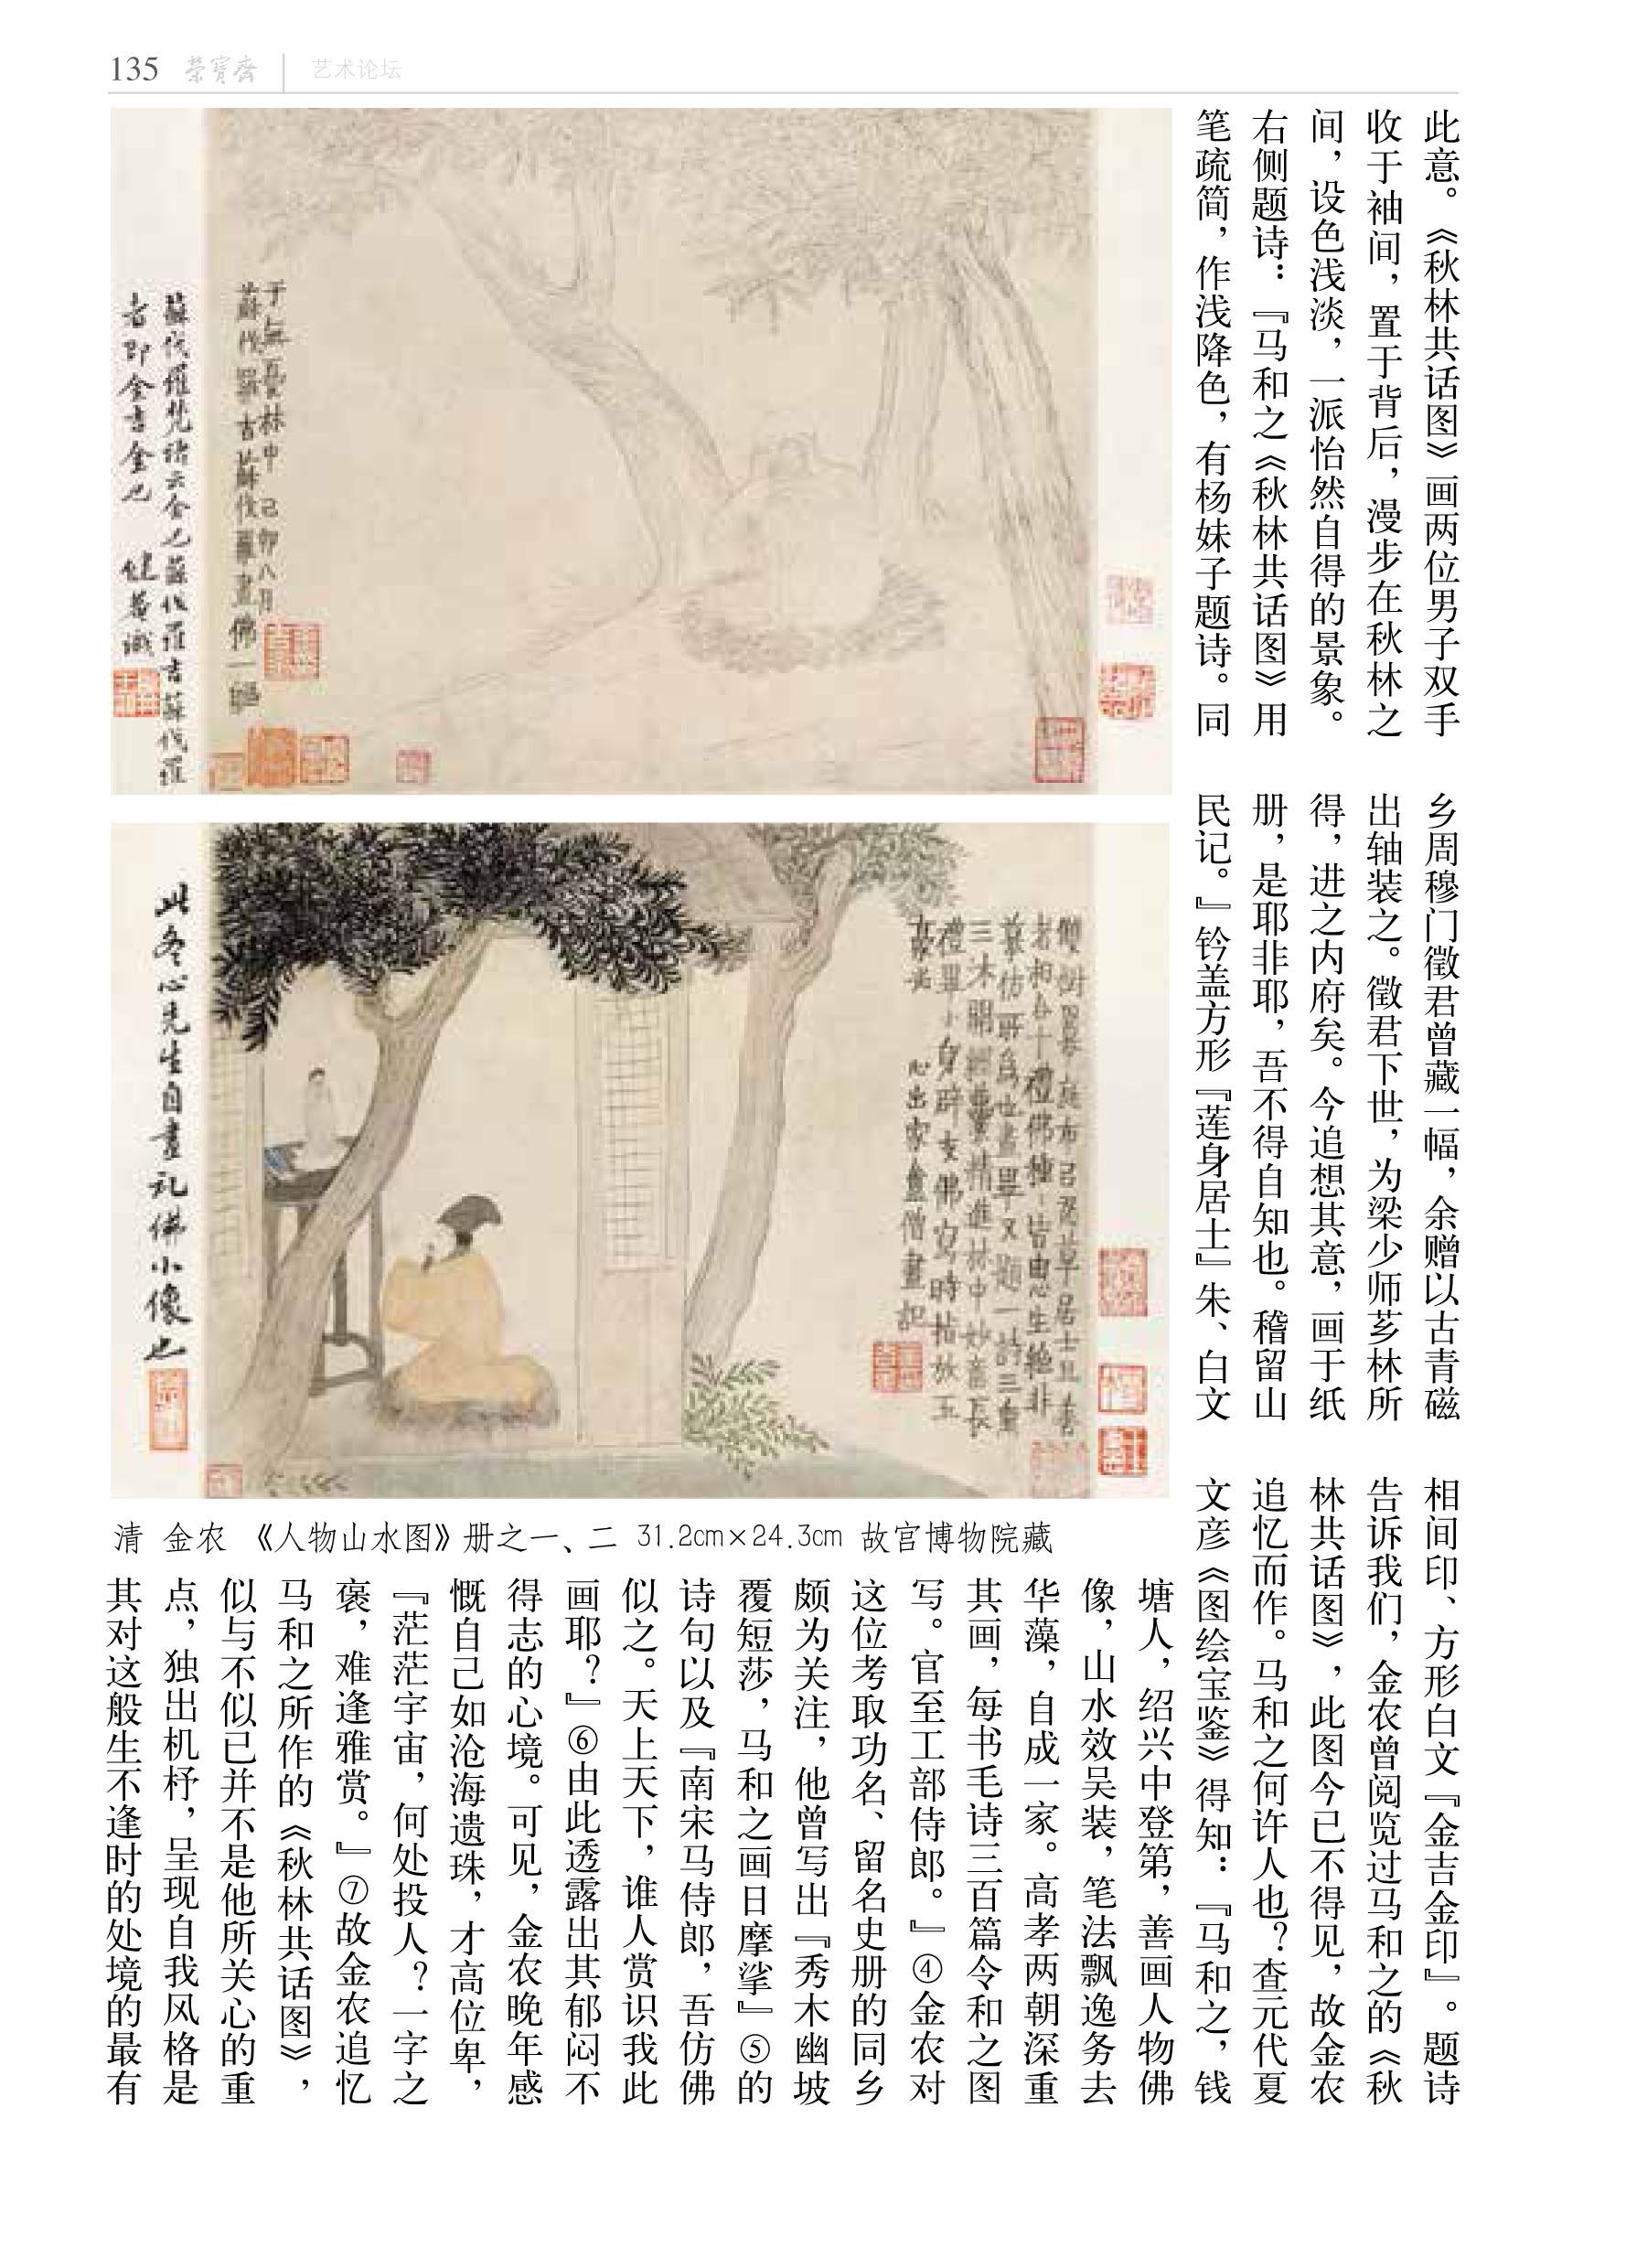 135 荣宝斋 艺术论坛
此意。《秋林共话图》画两位男子双手
收于袖间，置于背后，漫步在秋林之
间，设色浅淡，一派怡然自得的景象。
右侧题诗：『马和之《秋林共话图》用
笔疏简，作浅降色，有杨妹子题诗。同
乡周穆门徵君曾藏一幅，余赠以古青磁
出轴装之。徵君下世，为梁少师芗林所
得，进之内府矣。今追想其意，画于纸
册，是耶非耶，吾不得自知也。稽留山
民记。』钤盖方形『莲身居士』朱、白文
相间印、方形白文『金吉金印』。题诗
告诉我们，金农曾阅览过马和之的《秋
林共话图》，此图今已不得见，故金农
追忆而作。马和之何许人也？查元代夏
文彦《图绘宝鉴》得知：『马和之，钱
塘人，绍兴中登第，善画人物佛
像，山水效吴装，笔法飘逸务去
华藻，自成一家。高孝两朝深重
其画，每书毛诗三百篇令和之图
写。官至工部侍郎。』④金农对
这位考取功名、留名史册的同乡
颇为关注，他曾写出『秀木幽坡
覆短莎，马和之画日摩挲』⑤的
诗句以及『南宋马侍郎，吾仿佛
似之。天上天下，谁人赏识我此
画耶？』⑥由此透露出其郁闷不
得志的心境。可见，金农晚年感
慨自己如沧海遗珠，才高位卑，
『茫茫宇宙，何处投人？一字之
褒，难逢雅赏。』⑦故金农追忆
马和之所作的《秋林共话图》，
似与不似已并不是他所关心的重
点，独出机杼，呈现自我风格是
其对这般生不逢时的处境的最有
于无憂林中 己卯八月
蘇伐羅吉蘇伐羅畫佛一軀
蘇伐羅梵語云金也蘇伐羅吉蘇伐羅
者即金吉金也 健菴識
此冬心先生自畫礼佛小像也
者相各十禮佛種〻皆由心生絶非
摹仿所為也畫畢又題一詩三重
三木開經藏精進林中妙喜長
禮畢小身辟支佛寫時拈放五
心出家盦僧畫記
清 金农 《人物山水图》册之一、二 31.2cm×24.3cm 故宫博物院藏